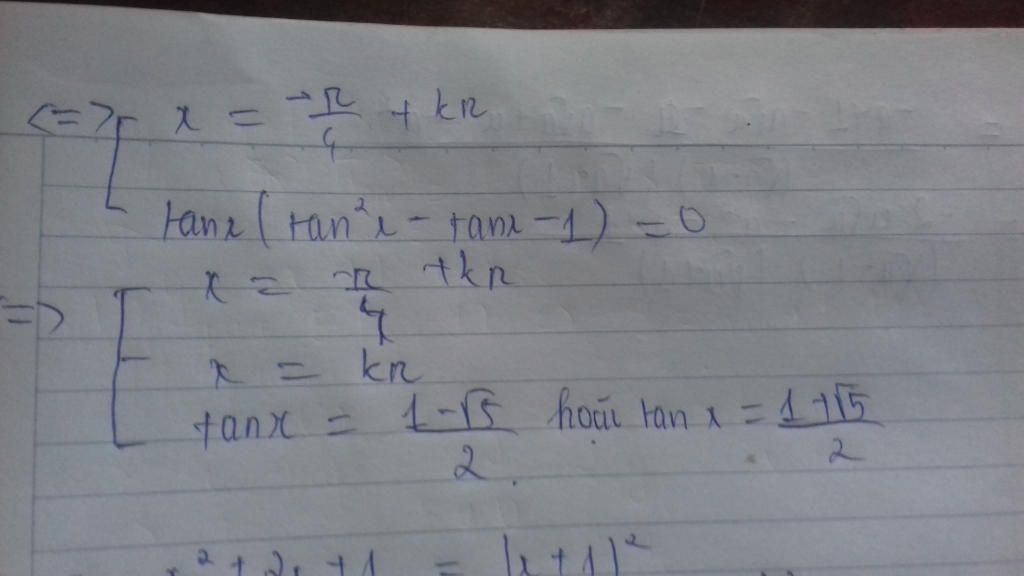 <=> x = -π/4 + kπ
tanx(tan²x - tanx - 1) = 0
=> x = -π/4 + kπ
x = kπ
tanx = (1-√5)/2 hoặc tan x = (1+√5)/2
x² + 2x + 1 = (x+1)²